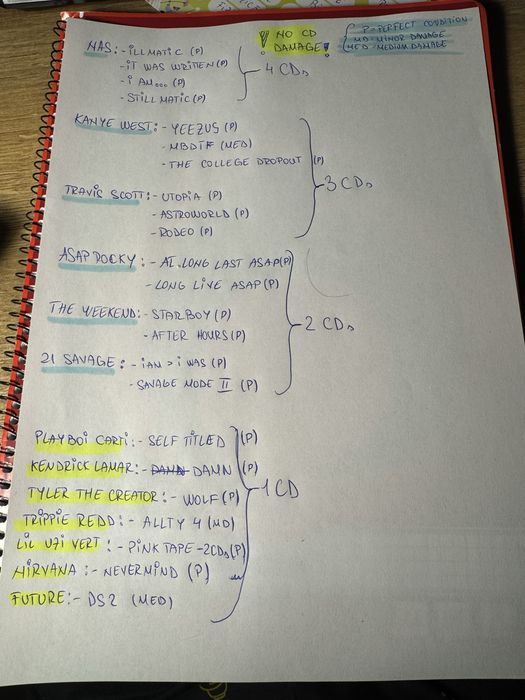 ! NO CD
DAMAGE!
P - PERFECT CONDITION
MD - MINOR DAMAGE
MED - MEDIUM DAMAGE
NAS: - ILLMATIC (P)
- IT WAS WRITTEN (P)
- I AM... (P)
- STILLMATIC (P)
4 CDs
KANYE WEST: - YEEZUS (P)
- MBDTF (MED)
- THE COLLEGE DROPOUT (P)
TRAVIS SCOTT: - UTOPIA (P)
- ASTROWORLD (P)
- RODEO (P)
3 CDs
ASAP ROCKY: - AT. LONG LAST ASAP (P)
- LONG LIVE ASAP (P)
THE WEEKEND: - STARBOY (P)
- AFTER HOURS (P)
21 SAVAGE: - I AM > I WAS (P)
- SAVAGE MODE II (P)
2 CDs
PLAYBOI CARTI: - SELF TITLED (P)
KENDRICK LAMAR: - DAMN DAMN (P)
TYLER THE CREATOR: - WOLF (P)
TRIPPIE REDD: - ALLTY 4 (MD)
LIL UZI VERT: - PINK TAPE - 2CDs (P)
NIRVANA: - NEVERMIND (P)
FUTURE: - DS2 (MED)
1 CD